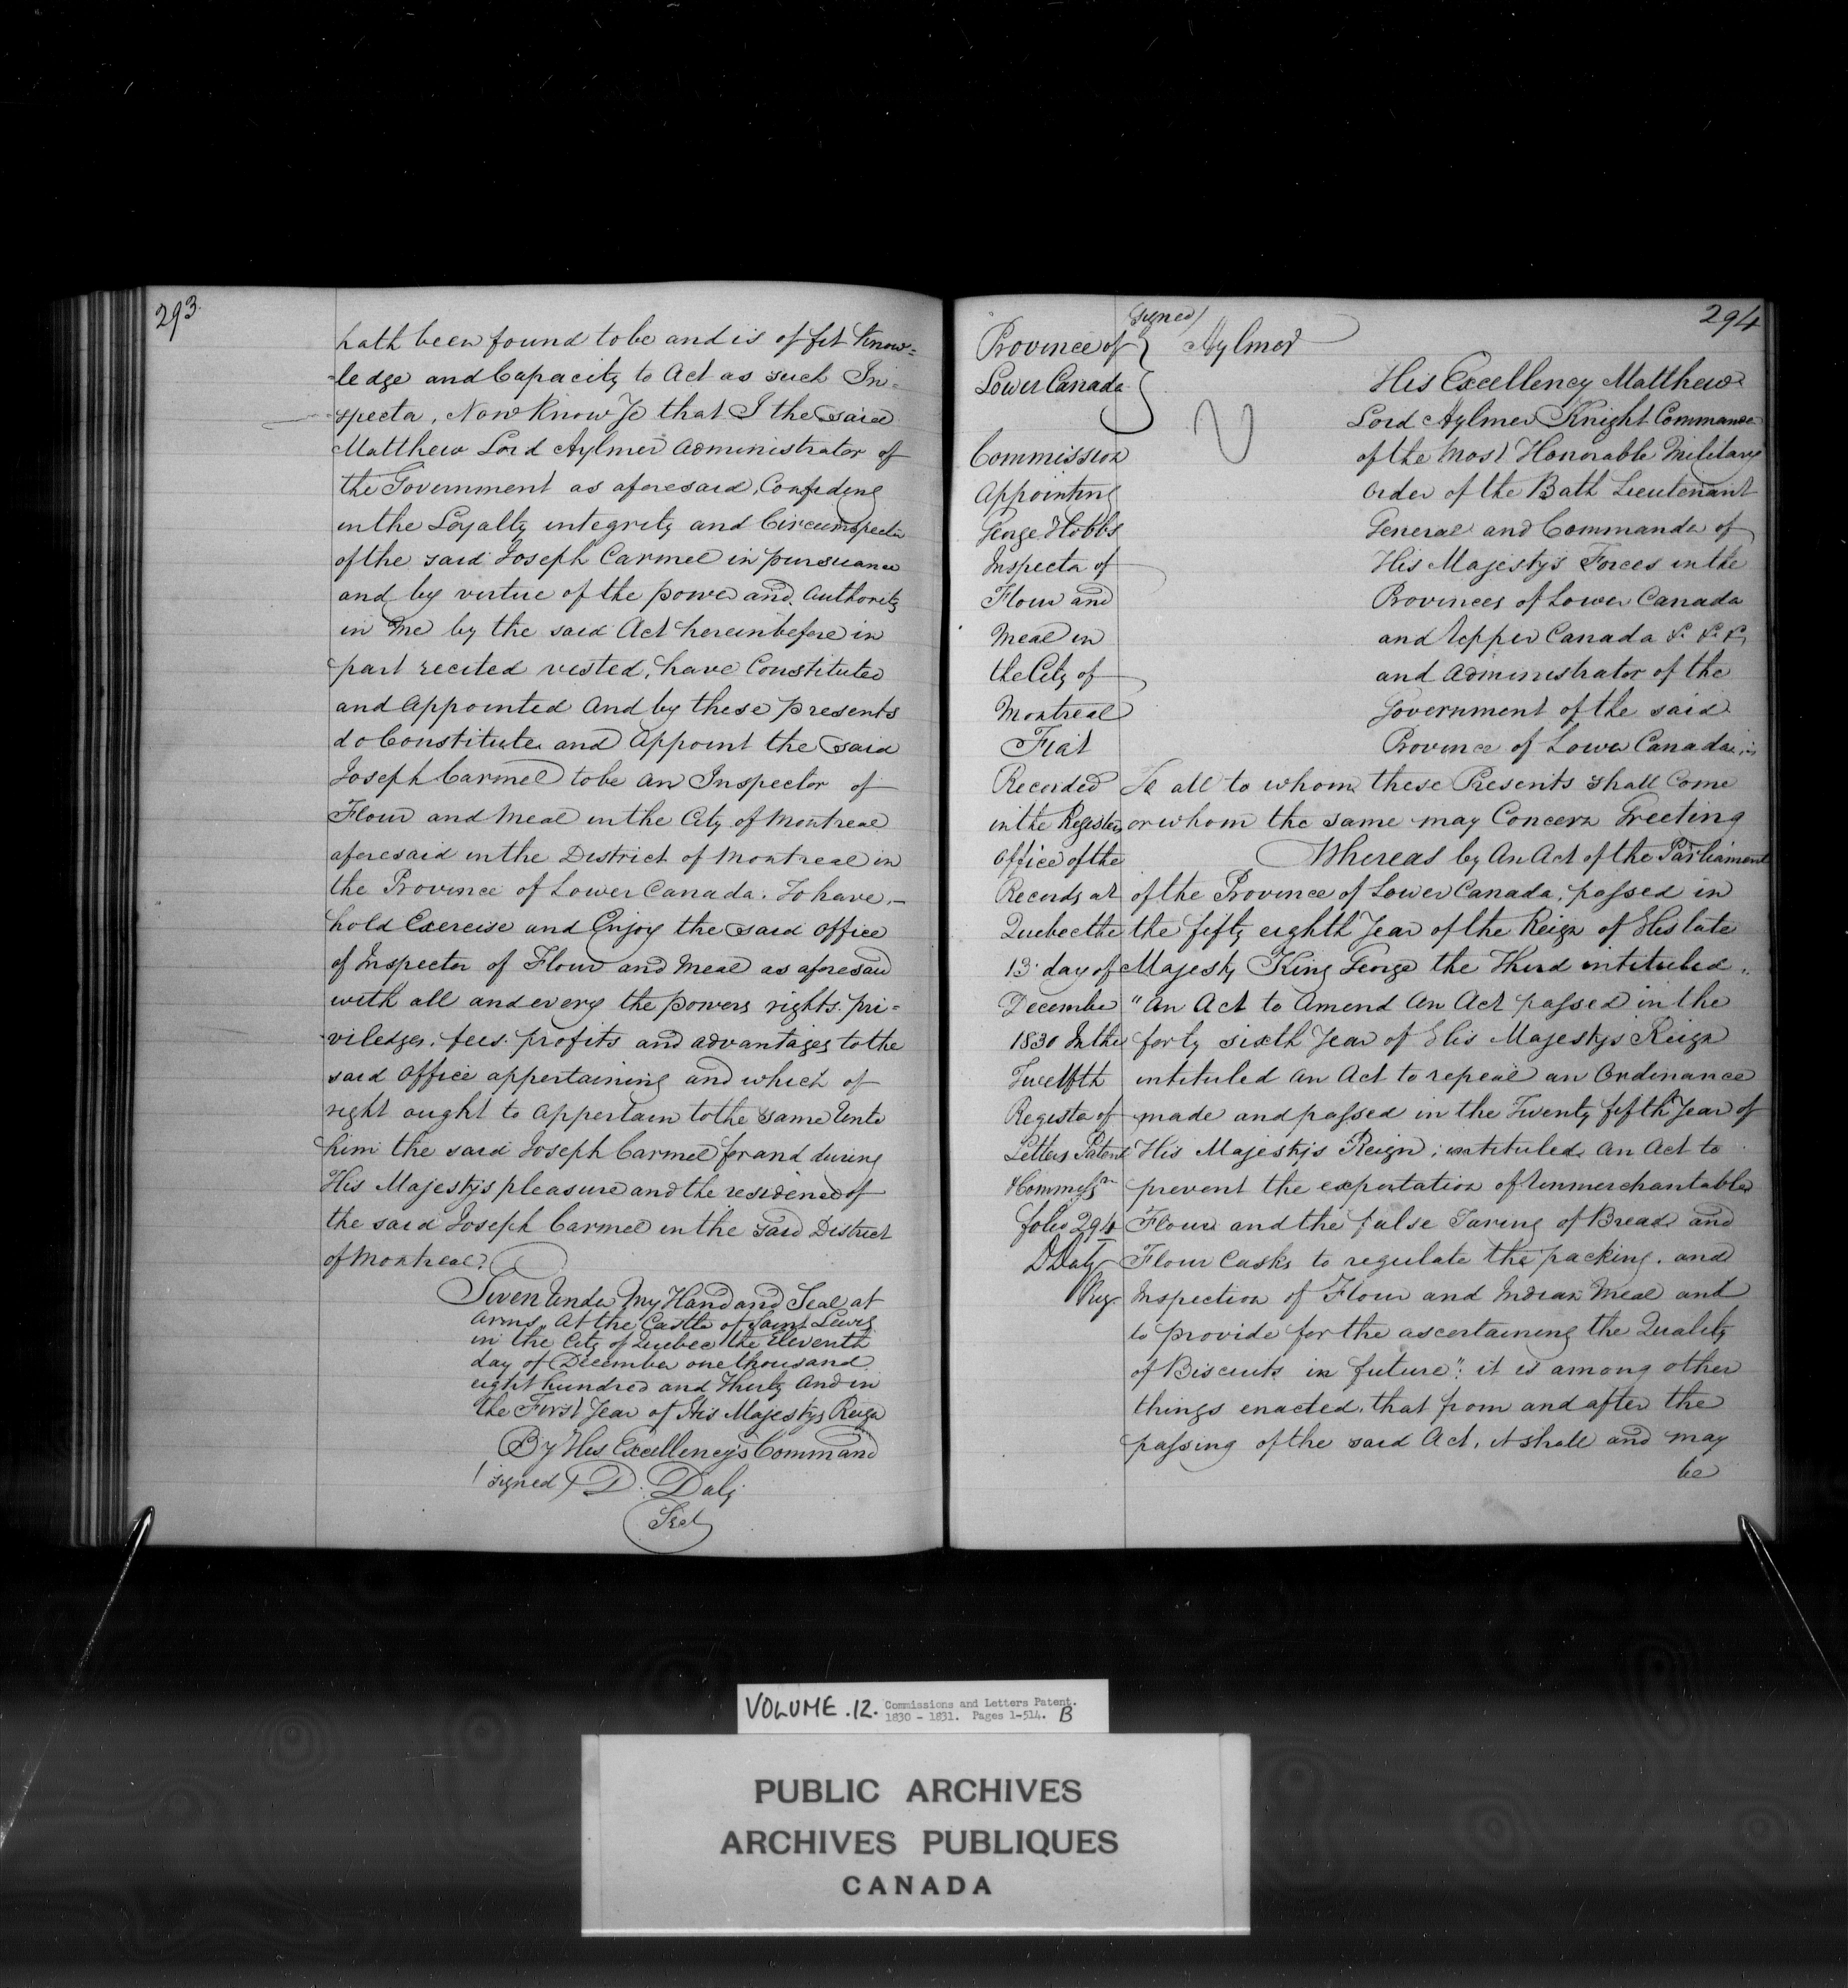 293.
hath been found to be and is of fit Know=
=ledge and Capacity to Act as such In=
specter, Now Know Ye that I the said
Matthew Lord Aylmer Administrator of
the Government as aforesaid, Confiding
in the Loyalty integrity and Circumspection
of the said Joseph Carmel in pursuance
and by virtue of the power and Authority
in me by the said Act hereinbefore in
part recited vested, have Constituted
and Appointed And by these presents
do Constitute and Appoint the said
Joseph Carmel to be an Inspector of
Flour and Meal in the City of Montreal
aforesaid in the District of Montreal in
the Province of Lower Canada. To have,
hold Exercise and Enjoy the said Office
of Inspector of Flour and Meal as aforesaid
with all and every the powers rights. pri=
viledges. fees. profits and advantages to the
said Office appertaining and which of
right ought to appertain to the same Unto
him the said Joseph Carmel for and during
His Majesty's pleasure and the residence of
the said Joseph Carmel in the said District
of Montreal.
Given Under My Hand and Seal at
Arms, At the Castle of Saint Lewis
in the City of Quebec the Eleventh
day of December one thousand
eight hundred and Thirty And in
the First Year of His Majesty's Reign
By His Excellency's Command
(signed) D. Daly
Secy
294
(signed)
Province of } Aylmer
Lower Canada }
Commission
Appointing
George Hobbs
Inspector of
Flour and
Meal in
the City of
Montreal
Fiat
Recorded
in the Register
Office of the
Records at
Quebec the
13 day of
December
1830 In the
Twelfth
Register of
Letters Patent
& Commissn
folio 294
D Daly
Reg.
His Excellency Matthew
Lord Aylmer Knight Commander
of the Most Honorable Military
Order of the Bath Lieutenant
General and Commander of
His Majesty's Forces in the
Provinces of Lower Canada
and Upper Canada &. &. &.
and Administrator of the
Government of the said
Province of Lower Canada
To all to whom these Presents shall Come
or whom the same may Concern Greeting
Whereas by An Act of the Parliament
of the Province of Lower Canada, passed in
the fifty eighth Year of the Reign of His late
Majesty King George the Third intituled.
"An Act to Amend An Act passed in the
forty sixth Year of His Majesty's Reign
intituled An Act to repeal an Ordinance
made and passed in the Twenty fifth Year of
His Majesty's Reign; intituled An Act to
prevent the exportation of Unmerchantable
Flour and the false Taring of Bread and
Flour Casks to regulate the packing. and
Inspection of Flour and Indian Meal and
to provide for the ascertaining the Quality
of Biscuits in future": it is among other
things enacted, that from and after the
passing of the said Act, it shall and may
be
VOLUME .12. Commissions and Letters Patent.
1830 - 1831. Pages 1-514. B
PUBLIC ARCHIVES
ARCHIVES PUBLIQUES
CANADA